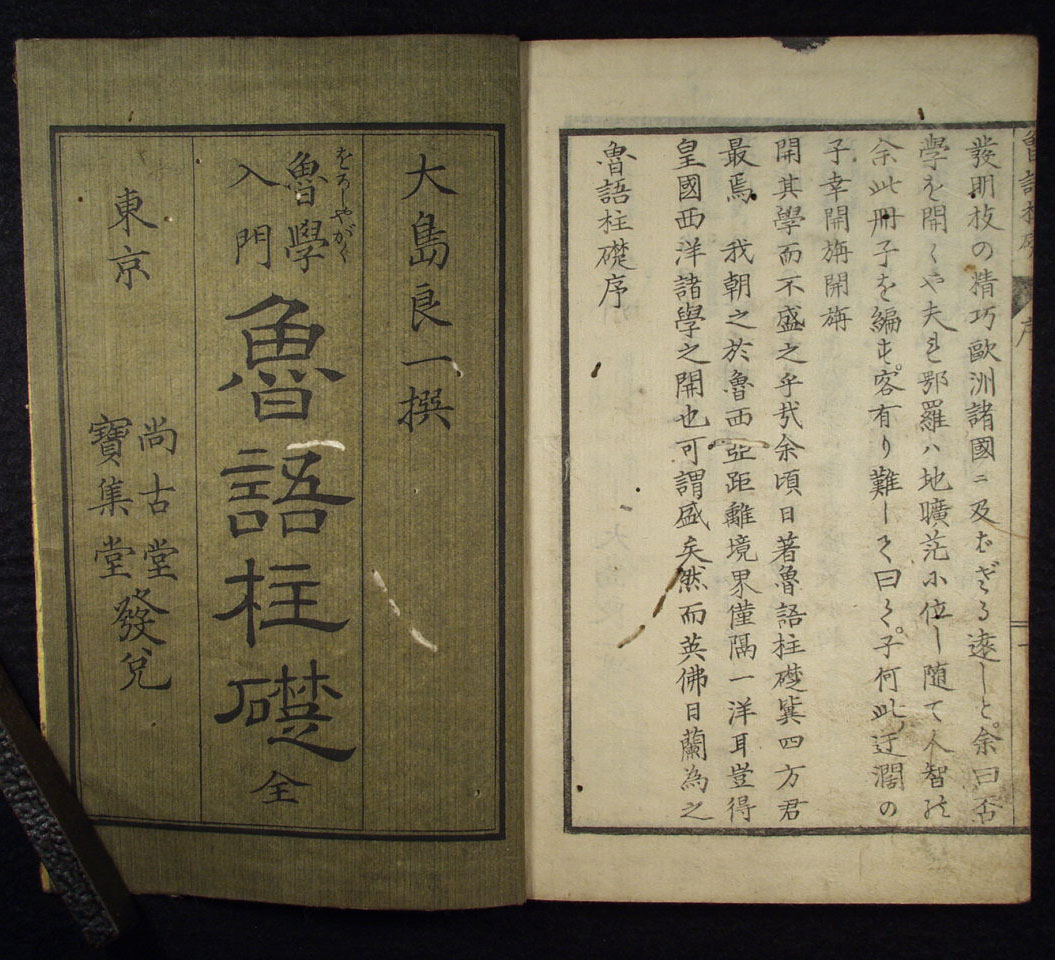 大島良一撰
をろしやがく
魯學
入門
魯語柱礎 全
東京
尚古堂
寶集堂
發兌
魯語柱礎序
皇國西洋諸學之開也可謂盛矣然而英佛日蘭為之
最焉 我朝之於魯西亞距離境界僅隔一洋耳豈得
開其學而不盛之乎哉余頃日著魯語柱礎冀四方君
子幸開旃開旃
余此冊子を編す。客有り難して曰く。子何此迂濶の
學を開くや夫れ鄂羅ハ地曠茫小位し随て人智の
發明技の精巧歐洲諸國ニ及ばざる遠しと。余曰否
魯語柱礎 序 一